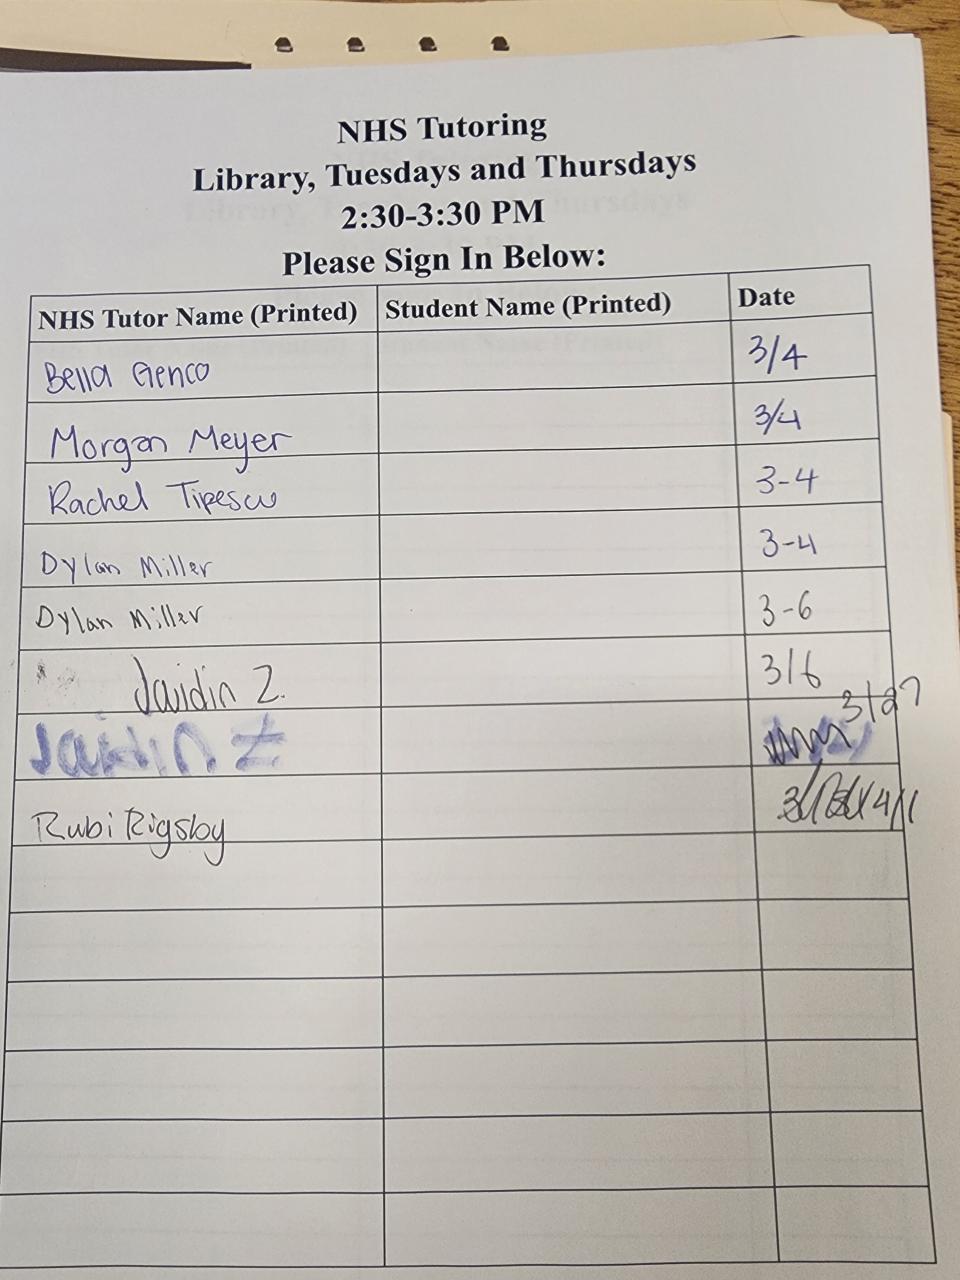 NHS Tutoring
Library, Tuesdays and Thursdays
2:30-3:30 PM
Please Sign In Below:
NHS Tutor Name (Printed) Student Name (Printed) Date
Bella Genco 3/4
Morgan Meyer 3/4
Rachel Tipescu 3-4
Dylan Miller 3-4
Dylan Miller 3-6
Jaidin Z. 3/6
Jaidin Z 3/27
Rubi Rigsby 4/1